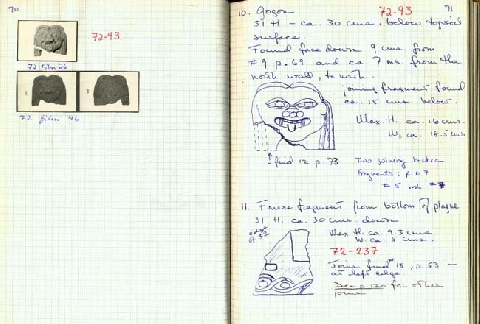 70
72-93
72 Film 46
72 Film 46
71
72-93
10. Gorgon
31 H - ca. 30 cms. below topsoil
surface
Found face down 9 cms from
#9 p. 69 and ca 7 ms. from the
north wall, to north.
joining fragment found
ca. 15 cms below.
Max H. ca. 16 cms
W. ca. 18.5 cms
find 12 p. 73
Two joining
fragments: p. 67
# 5
11. Frieze fragment from bottom of plaque
31 H. ca. 30 cms. down
Max H. ca 9.3 cms
W. ca
72-237
Joins find 18, p. 53 —
at left edge
for other
joins